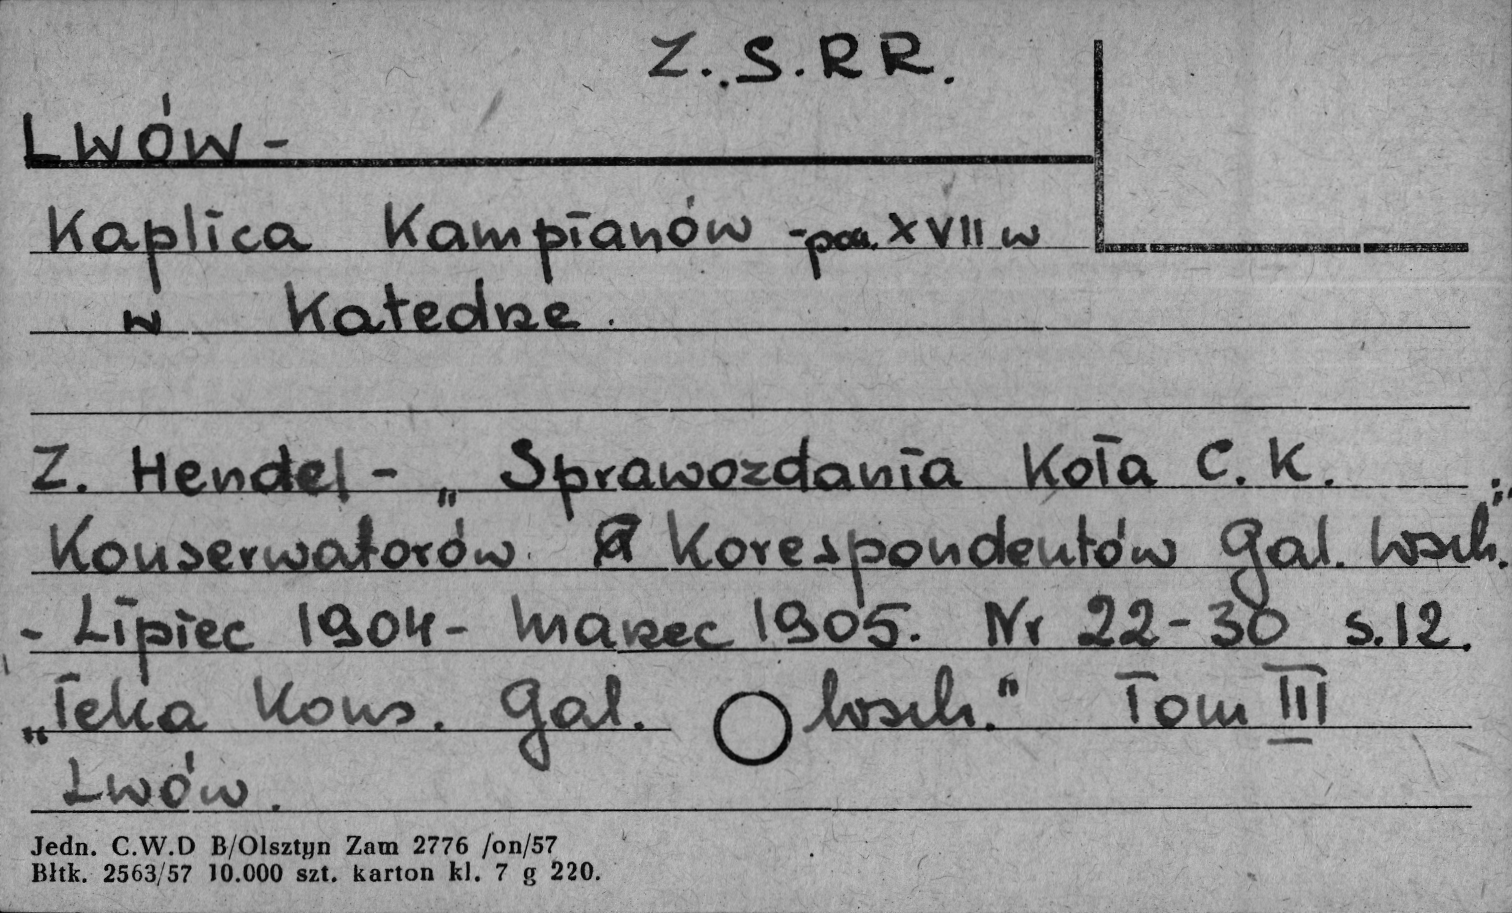 Z.S.RR.
LWÓW-
Kaplica Kampianów - pocz. XVII w
w Katedrze.
Z. Hendel - „Sprawozdania Koła C.K.
Konserwatorów Korespondentów Gal. Wsch.”
- Lipiec 1904 - Marzec 1905. Nr 22-30 s.12.
„Teka Kons. Gal. Wsch.” Tom III
Lwów.
Jedn. C.W.D B/Olsztyn Zam 2776 /on/57
Błtk. 2563/57 10.000 szt. karton kl. 7 g 220.